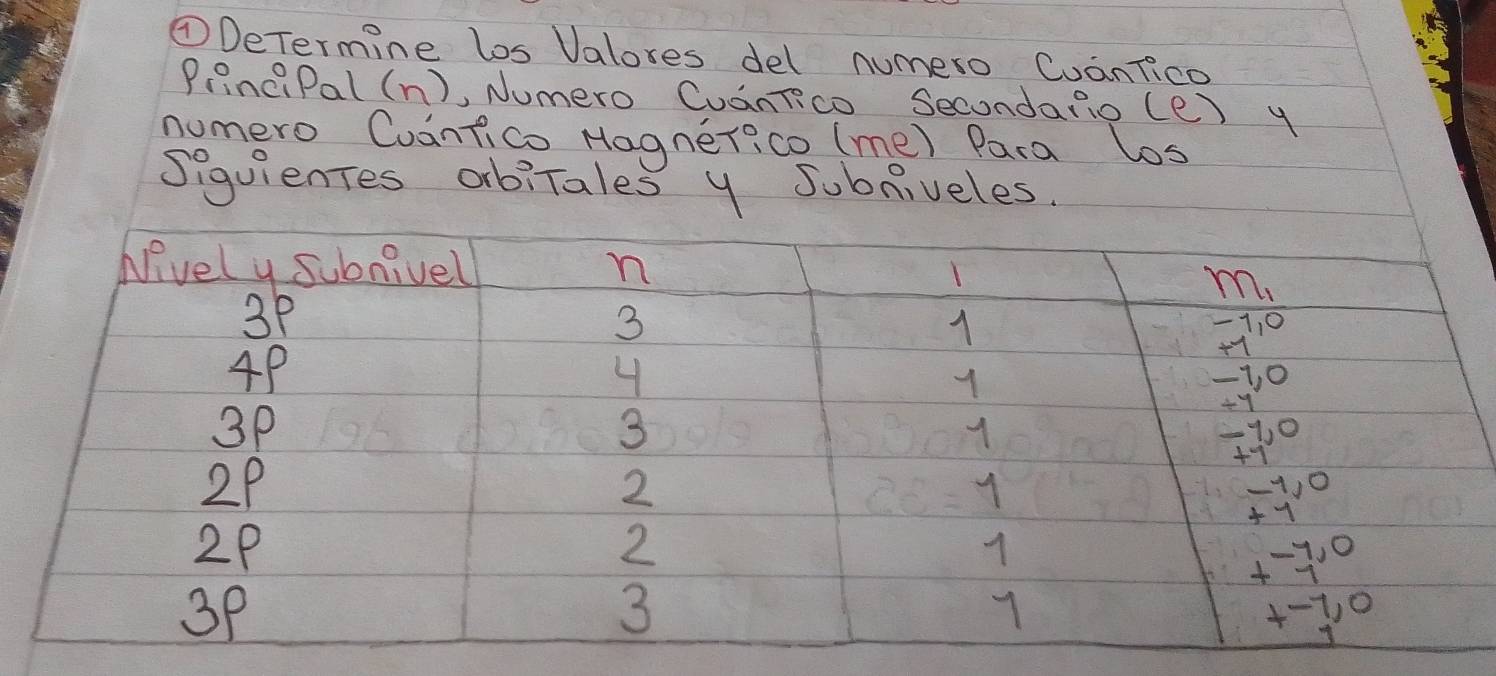 ① Determine los Valores del numero Cuántico
Principal (n), Numero Cuántico Secundario (e) y
numero Cuántico Magnético (me) Para los
Siguientes orbitales y Subniveles.
Nivel y Subnivel n l m,
3P 3 1 -1,0 +1
4P 4 1 -1,0 +1
3P 3 1 -1,0 +1
2P 2 1 -1,0 +1
2P 2 1 -1,0 +1
3P 3 1 -1,0 +1